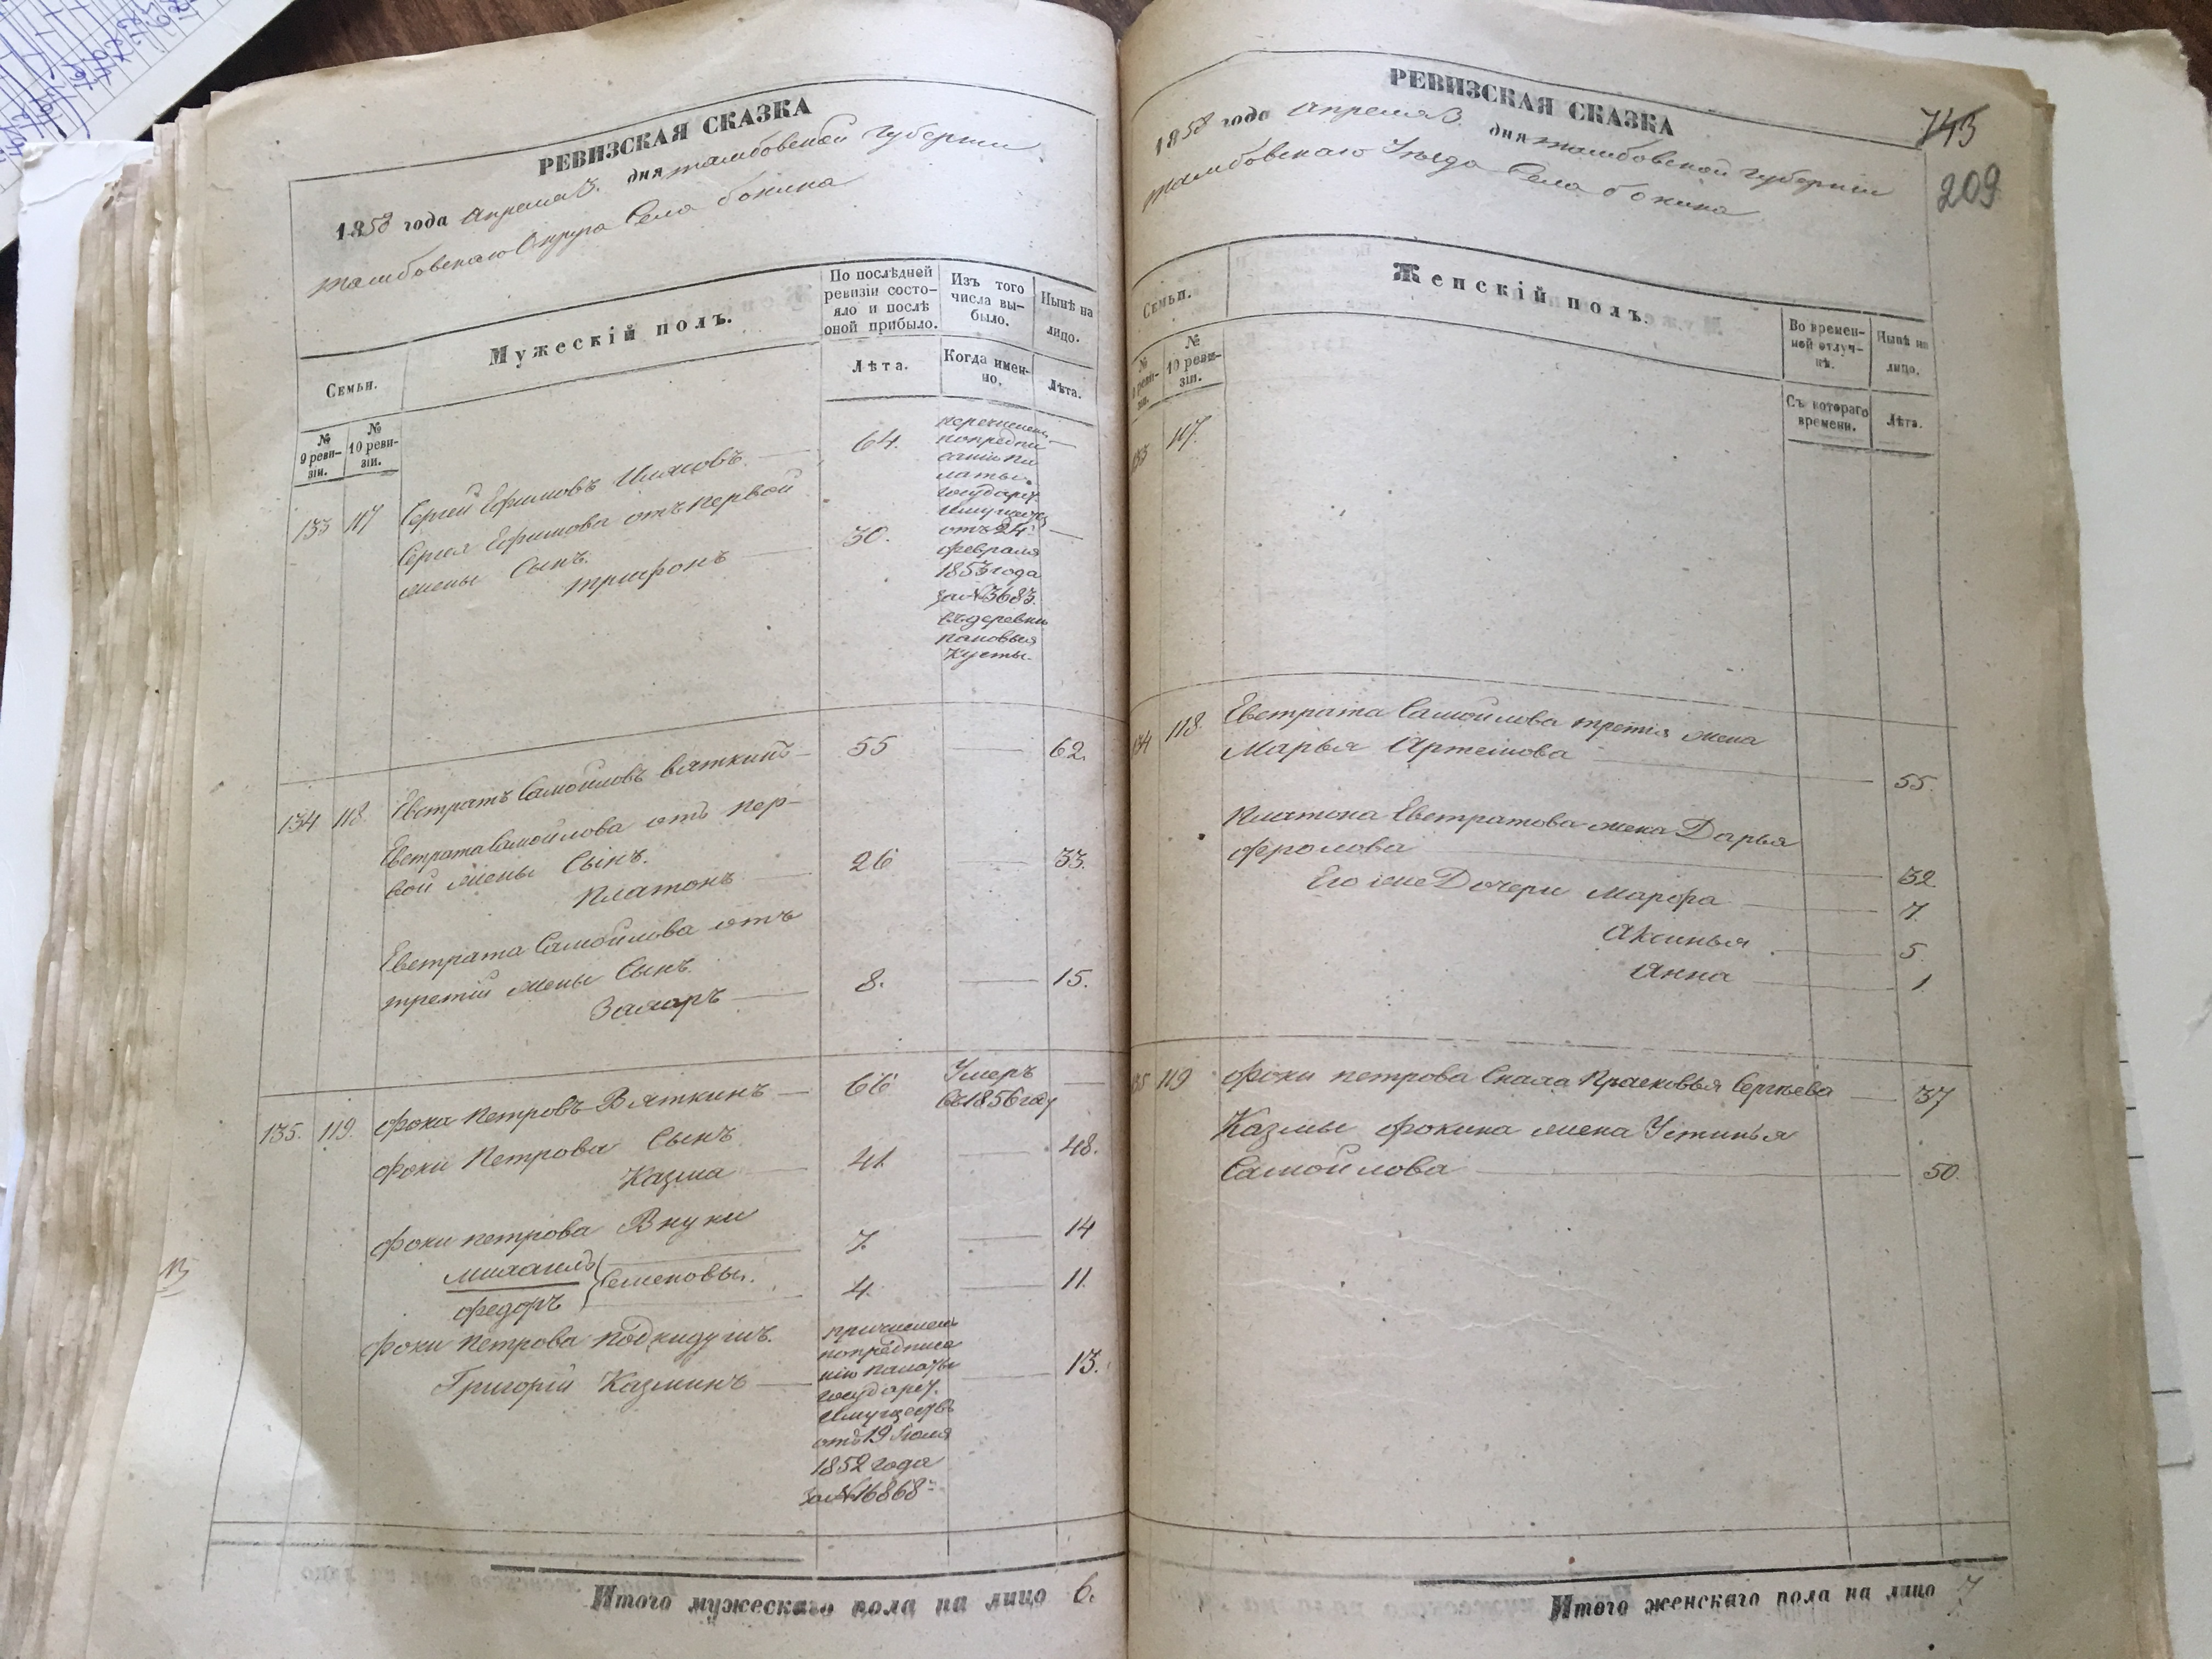 РЕВИЗСКАЯ СКАЗКА
1858 года Апреля 3. дня тамбовской губернии
тамбовскаго Округа Села бокина
Семьи.
Мужескій полъ.
По послѣдней
ревизіи состо-
яло и послѣ
оной прибыло.
Изъ того
числа вы-
было.
Нынѣ на
лицо.
№
9 реви-
зіи.
№
10 реви-
зіи.
Лѣта.
Когда имен-
но.
Лѣта.
133 117 Сергей Ефимовъ 64.
Сергея Ефимова отъ первой
жены Сынъ.
трифонъ 30.
перечислен.
попредпи
санію па
латы
государ.
имуществ
отъ 24
февраля
1853 года
за №3683.
въ деревни
пановыя
кусты.
134 118. Евстратъ Самойловъ вяткинъ 55 62.
Евстрата Самойлова отъ пер-
вой жены Сынъ.
Платонъ 26 33.
Евстрата Самойлова отъ
третій жены Сынъ.
Захаръ 8. 15.
135. 119. фока Петровъ Вяткинъ 66 Умеръ
въ 1856 году
фоки Петрова Сынъ
Казма 41 48.
фоки петрова Внуки
михаилъ 7. 14
Семеновы.
федоръ 4. 11.
фоки Петрова подкидушъ.
Григорій Казминъ 13.
причислен
попредписа
нію палаты
государ.
имуществъ
отъ 19 Іюля
1852 года
за №16868
Итого мужескаго пола на лицо 6.
РЕВИЗСКАЯ СКАЗКА
1858 года Апреля 3. дня тамбовской губерніи
тамбовскаго Уезда Села бокина
745
209
Семьи.
Женскій полъ.
Во времен-
ной отлуч-
кѣ.
Нынѣ на
лицо.
№
9 реви-
зіи.
№
10 реви-
зіи.
Съ котораго
времени.
Лѣта.
133 117.
134 118. Евстрата Самойлова третія жена
Марья Артемова 55.
Платона Евстратова жена Дарья
фролова 32
Его же Дочери Марфа 7.
Аксинья 5.
Анна 1
135 119 фоки петрова Сноха Прасковья Сергѣева 37
Казмы фокина жена Устинья
Самойлова 50.
Итого женскаго пола на лицо 7